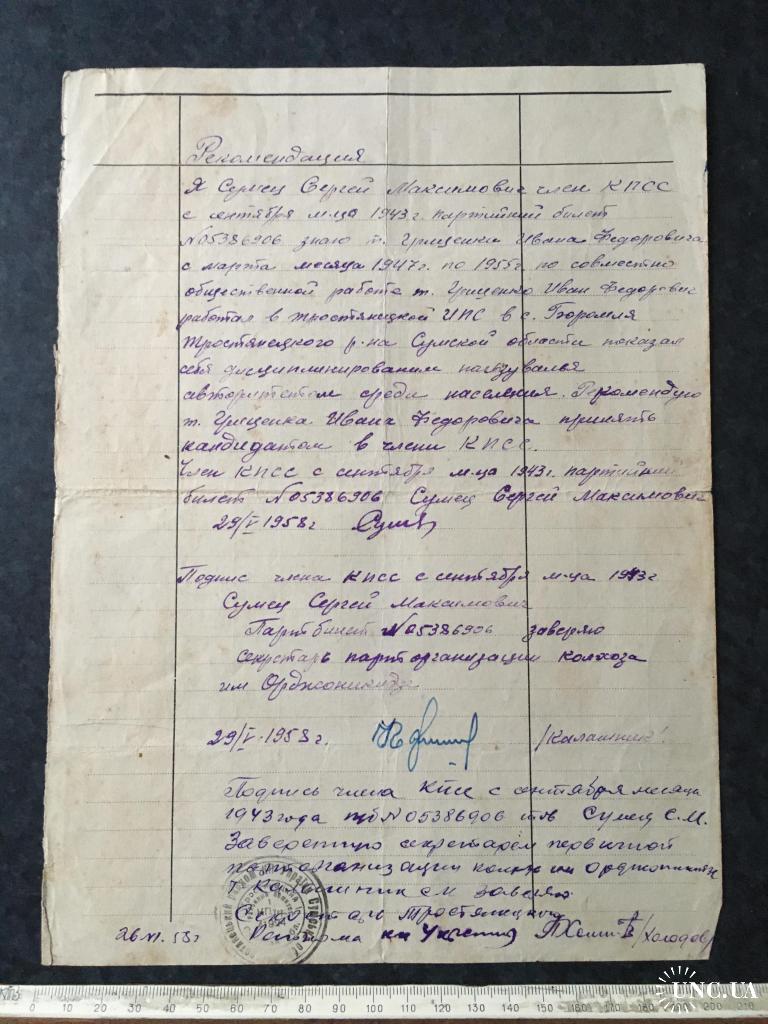 Рекомендация
Я Сумец Сергей Максимович член КПСС
с сентября м-ца 1943г. партийний билет
№05386906 знаю т. Грищенка Ивана Федоровича
с марта месяца 1947г. по 1955г. по совместно
общественной работе т. Грищенко Иван Федорович
работал в Тростянецкой ИПС в с. Боромля
Тростянецкого р-на Сумской области показал
себя дисциплинированим
авторитетом среди населения. Рекомендую
т. Грищенка Ивана Федоровича принять
кандидатом в члени КПСС.
Член КПСС с сентября м-ца 1943г. партийний
билет №05386906 Сумец Сергей Максимович
29/V 1958г Сумец
Подпис члена КПСС с сентября м-ца 1943г
Сумец Сергей Максимович
Партбилет №05386906 заверяю
Секретарь парторганизации колхоза
им Орджоникидзе
29/V-1958г. /Калашник/
Подпись члена КПСС с сентября месяца
1943 года п/б №05386906 тов Сумец С.М.
Заверенную секретарем первичной
парторганизации колхоза им Орджоникидзе
т. Калашником заверяю
Тростянецкого
Райкома КП Украины /Холодов/
26.VI.58г
0 10 20 30 40 50 60 70 80 90 100 110 120 130 140 150 160 170 180 190 200 210
UNC.UA